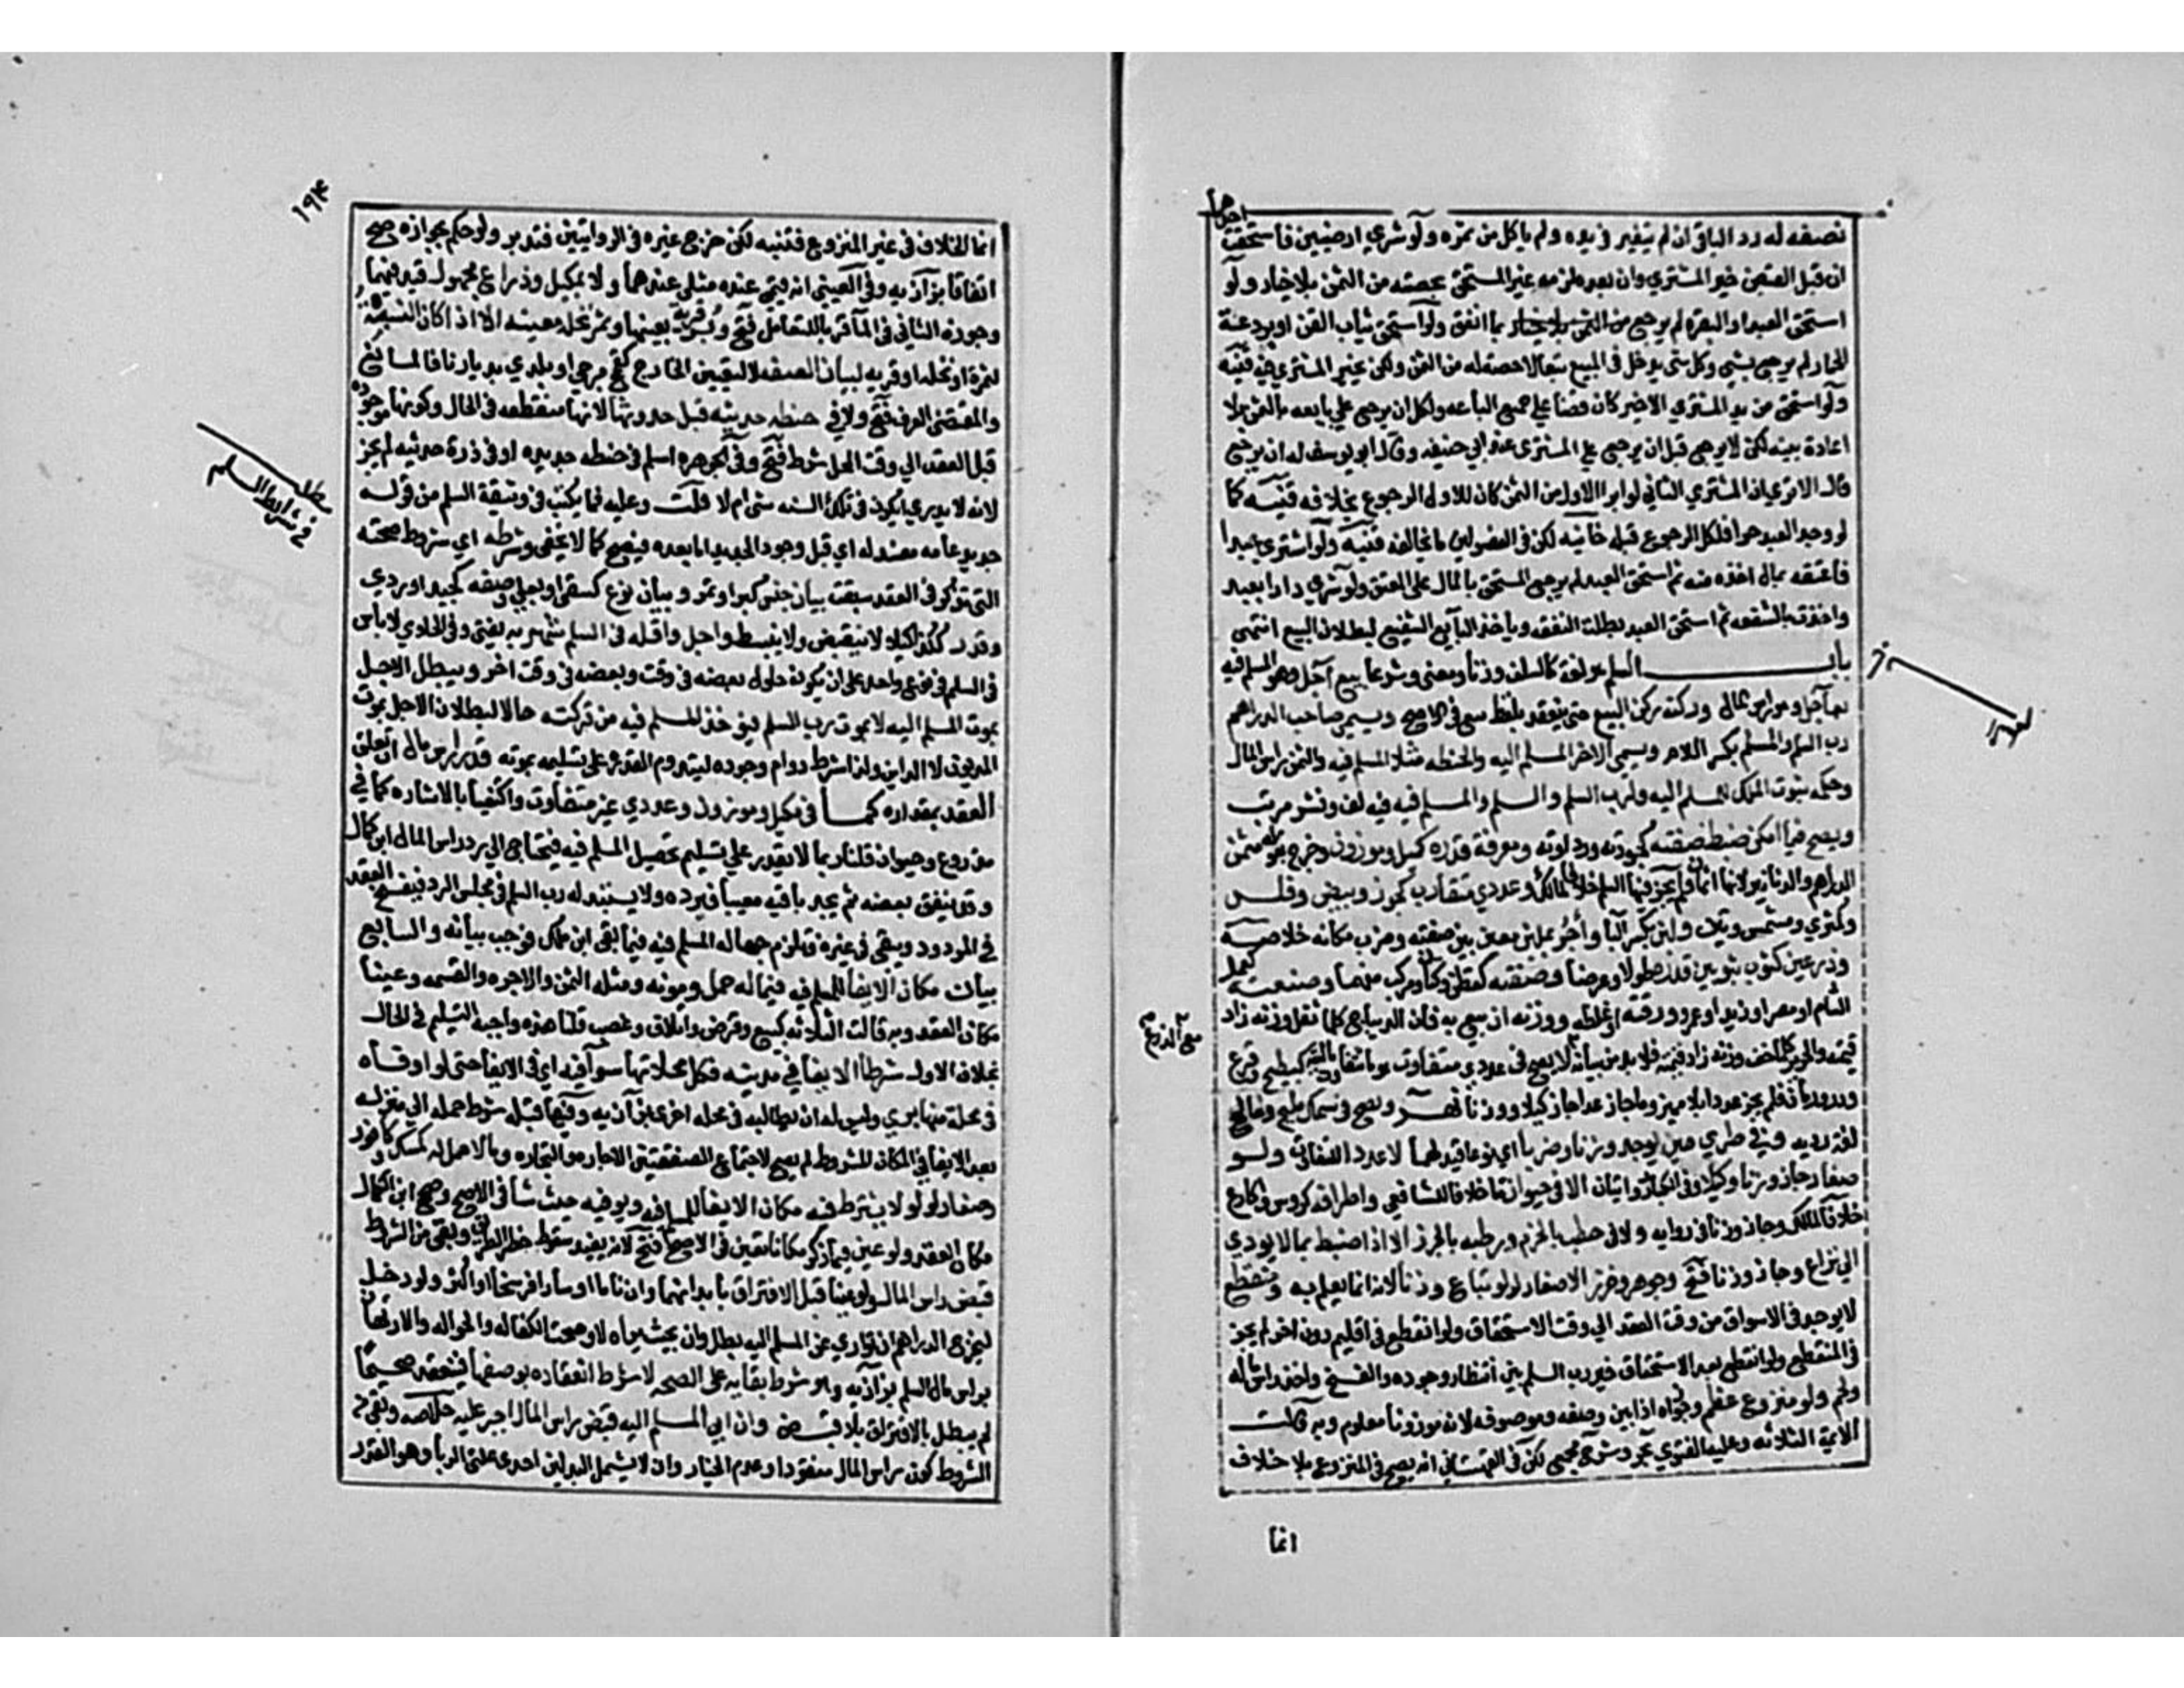 نصفه له رد الباقي ان لم يتغير في يده ولم ياكل من ثمره ولو شري ارضيين فاستحقت
احداهما
ان قبل القبض خير المشتري وان بعده لزمه غير المستحق بحصته من الثمن بلا خيار ولو
استحق العبد او البقره لم يرجع بما انفق ولو استحق ثياب القن او بردعة
الحمار لم يرجع بشي وكل شي يدخل في البيع تبعا لا حصة له من الثمن ولكن يخير المشتري فيه قنيه
ولو استحق من يد المشتري الاخير كان قضا علي جميع الباعه ولكل ان يرجع علي بايعه بالثمن بلا
اعادة بينه لكن لا يرجع قبل ان يرجع علي المشتري عند ابي حنيفه وقال ابو يوسف له ان يرجع
قال الا تري ان المشتري الثاني لو ابرا الاول من الثمن كان للاول الرجوع بخلافه قنيه كما
لو وجد العبد حرا فلكل الرجوع قبله خانيه لكن في الفصولين ما يخالفه قنيه ولو اشتري عبدا
فاعتقه بمال اخذه منه ثم استحق العبد لم يرجع المستحق بالمال علي المعتق ولو شري دارا بعبد
واخذت بالشفعه ثم استحق العبد بطلت الشفعه وياخذ البايع الشفيع لبطلان البيع انتهي
باب السلم هو لغة كالسلف وزنا ومعني وشرعا بيع آجل وهو المسلم فيه
بعاجل وهو راس المال وركنه ركن البيع حتي ينعقد بلفظ بيع في الاصح ويسمي صاحب الدراهم
رب السلم والمسلم بكسر اللام ويسمي الاخر المسلم اليه والحنطه مثلا المسلم فيه والثمن راس المال
وحكمه ثبوت الملك للمسلم اليه ولرب السلم والسلم والمسلم فيه فيه لف ونشر مرتب
ويصح فيما امكن ضبط صفته كجودته ورداوته ومعرفة قدره كمكيل وموزون وخرج بقوله مثمن
الدراهم والدنانير لانها اثمان فلم يجز فيها السلم خلافا لمالك وعددي متقارب كجوز وبيض وفلس
وكمثري ومشمش وتين ولبن بكسر البا وآجر بملبن معين بين صفته ومضرب مكانه خلاصه
وذرعي كثوب بين قدره طولا وعرضا وصنعته كقطن وكتان ومركب منهما وصنعته كعمل
الشام او مصر او زيد او عمرو ورقته او غلظه ووزنه ان بيع به فان الديباج كلما ثقل وزنه زاد
قيمته والحرير كلما خف وزنه زاد قيمته فلا بد من بيانه لا يصح في عددي متفاوت هو ما تتفاوت ماليته كبطيخ وقرع
ودر ورمان فلم يجز عددا بلا مميز وما جاز عدا جاز كيلا ووزنا نهر ويصح في سمك مليح ومالح
لغة رديه وفي طري حين يوجد وزنا وضربا اي نوعا قيد لهما لا عددا للتفاوت ولو
صغار جاز وزنا وكيلا وفي الكبار روايتان لا في حيوان ما خلافا للشافعي واطرافه كروس وكارع
خلافا لمالك وجاز وزنا في روايه ولا في حطب بالحزم ورطبه بالجرز الا اذا ضبط بما لا يودي
الي نزاع وجاز وزنا فتح وجوهر وخرز الا صغار لولو تباع وزنا لانه انما يعلم به ومنقطع
لا يوجد في الاسواق من وقت العقد الي وقت الاستحقاق ولو انقطع في اقليم دون اخر لم يجز
في المنقطع ولو انقطع بعد الاستحقاق خير رب السلم بين انتظار وجوده والفسخ واخذ راس ماله
ولحم ولو منزوع عظم وجوزاه اذا بين وصفه وموضعه لانه موزون معلوم وبه قالت
الائمة الثلاثه وعليه الفتوي بحر وشرح مجمع لكن في القهستاني انه يصح في المنزوع بلا خلاف
انما
١٩٤
انما الخلاف في غير المنزوع فتنبه لكن صرح غيره في الروايتين فتدبر ولو حكم بجوازه صح
اتفاقا بزازيه وفي العيني انه قيمي عنده مثلي عندهما ولا بمكيل وذراع مجهول قيد فيهما
وجوزه الثاني في الما قربا للتعامل فتح وبر قرية بعينها وثمر نخلة معينه الا اذا كان النسبة
لثمرة او نخلة او قريه لبيان الصفه لا لتعيين الخارج كقمح مرجي او بلدي بديارنا فالمانع
والمقتضي العرف فتح ولا في حنطه حديثه قبل حدوثها لانها منقطعه في الحال وكونها موجوده
قبل العقد الي وقت المحل شرط فتح وفي الجوهره اسلم في حنطه جديده او في ذرة حديثه لم يجز
لانه لا يدري ايكون في تلك السنه شي ام لا قلت وعليه فما يكتب في وثيقة السلم من قوله
جديد عامه مفسد له اي قبل وجود الجديد اما بعده فيصح كما لا يخفي وشرطه اي شروط صحته
التي تذكر في العقد سبعة بيان جنس كبر او تمر وبيان نوع كسقي او بعلي وصفه كجيد او ردي
وقدر ككذا كيلا لا ينقبض ولا ينبسط واجل واقله في السلم شهر به يفتي وفي الحاوي لا باس
في السلم في نوع واحد علي ان يكون حلول بعضه في وقت وبعضه في وقت اخر ويبطل الاجل
بموت المسلم اليه لا بموت رب السلم فيوخذ المسلم فيه من تركته حالا لبطلان الاجل بموت
المديون لا الداين ولذا شرط دوام وجوده لتدوم القدره علي تسليمه بموته وقدر راس مال ان تعلق
العقد بمقداره كما في مكيل وموزون وعددي غير متفاوت واكتفيا بالاشاره كما في
مذروع وحيوان قلنا ربما لا يقدر علي تسليم تحصيل المسلم فيه فيحتاج الي رد راس المال ابن كمال
وقد ينفق بعضه ثم يجد باقيه معيبا فيرده ولا يستبدله رب السلم في مجلس الرد فينفسخ العقد
في المردود ويبقي في غيره فتلزم جهالة المسلم فيه فيما بقي ابن ملك فوجب بيانه والسابع
بيان مكان الايفا للمسلم فيه فيما له حمل ومونه ومثله الثمن والاجره والقسمه وعينا
مكان العقد وبه قالت الثلاثه كبيع وقرض واتلاف وغصب قلنا هذه واجبة التسليم في الحال
بخلاف الاول شرط الايفا في مدينه فكل محلاتها سوآ فيه اي في الايفا حتي لو اوفاه
في محلة منها بري وليس له ان يطالبه في محله اخري بزازيه وفيها قبله شرط حمله الي منزله
بعد الايفا في المكان المشروط لم يصح لاجتماع الصفقتين الاجاره والتجاره وما لا حمل له كمسك وكافور
وصغار لولو لا يشترط فيه مكان الايفا للمسلم فيه ويوفيه حيث شا في الاصح وصحح ابن الكمال
مكان العقد ولو عين فيما ذكر مكانا تعين في الاصح فتح لانه يفيد سقوط خطر الطريق وبقي من الشروط
قبض راس المال ولو عينا قبل الافتراق بابدانهما وان ناما او سارا فرسخا او اكثر ولو دخل
ليخرج الدراهم ان تواري عن المسلم اليه بطل وان بحيث يراه لا وصحت الكفاله والحواله والارتهان
براس مال السلم بزازيه وهو شرط بقايه علي الصحه لا شرط انعقاده بوصفها فينعقد صحيحا
ثم يبطل بالافتراق بلا قبض وان ابي المسلم اليه قبض راس المال اجبر عليه خلاصه وبقي من
الشروط كون راس المال منقودا وعدم الخيار وان لا يشمل البدلين احدي علتي الربا وهو القدر
مطلب
في شرائط السلم